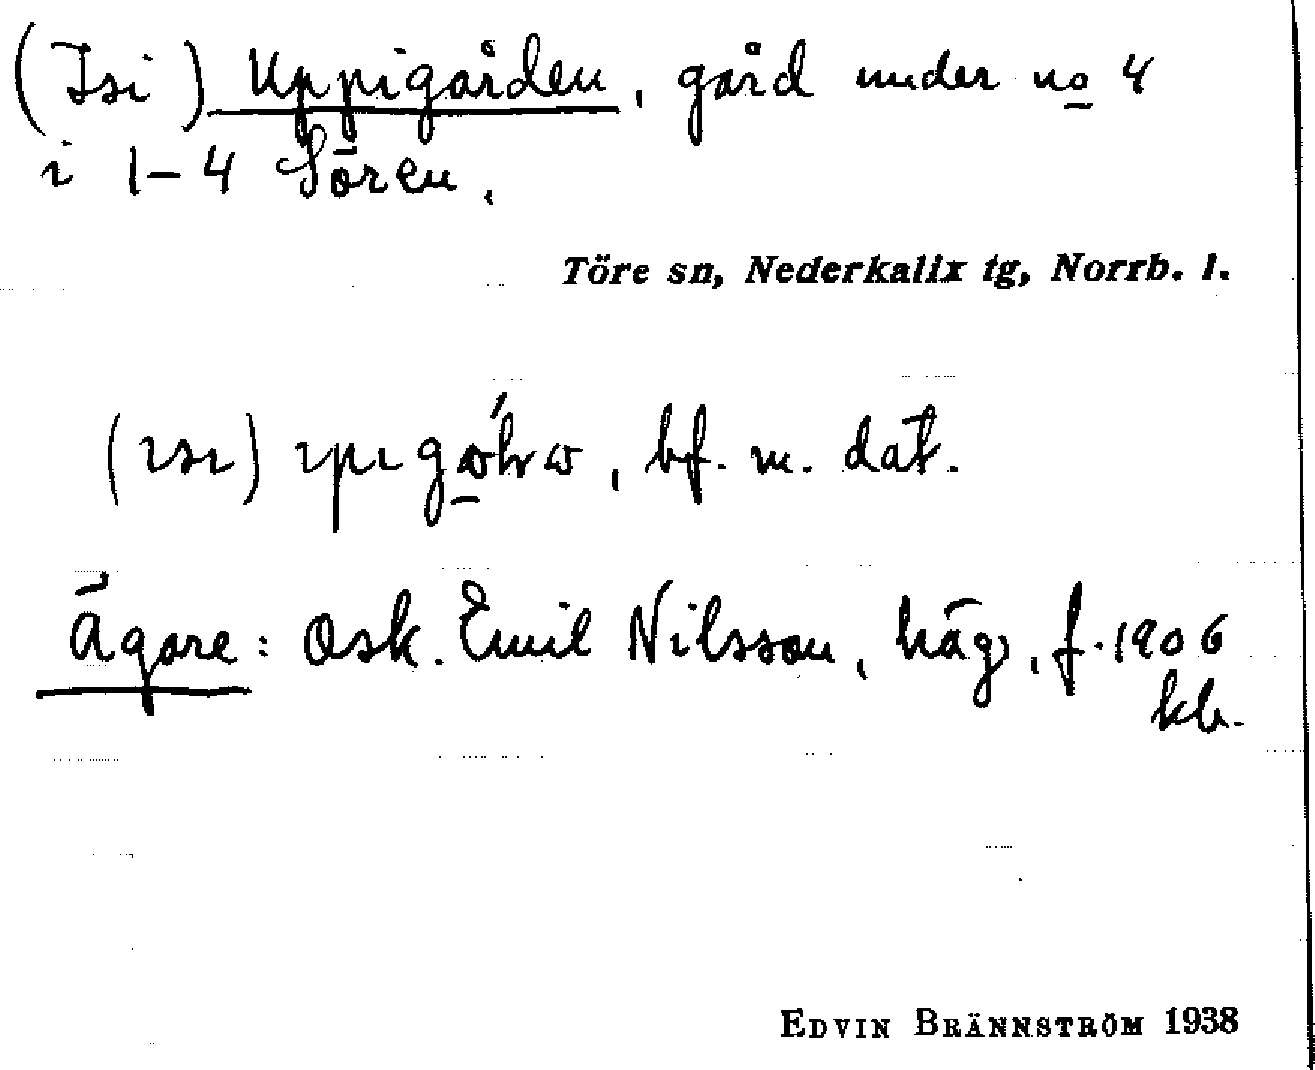 (Isi) Uppigården, gård under no 4
i 1-4 Sören.
Töre sn, Nederkalix tg, Norrb. l.
bf. m. dat.
Ägare: Osk. Emil Nilsson, häg., f. 1906
kb.
EDVIN BRÄNNSTRÖM 1938